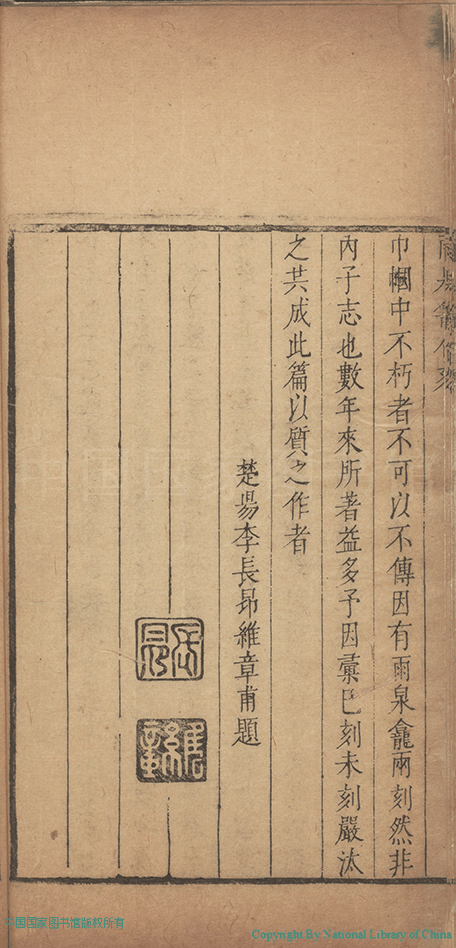 巾幗中不朽者不可以不傳因有雨泉龕兩刻然非
內子志也數年來所著益多予因彙已刻未刻嚴汰
之共成此篇以質之作者
楚陽李長昂維章甫題
長昂
維章
国国家图书馆版权所有
Copyright By National Library of China